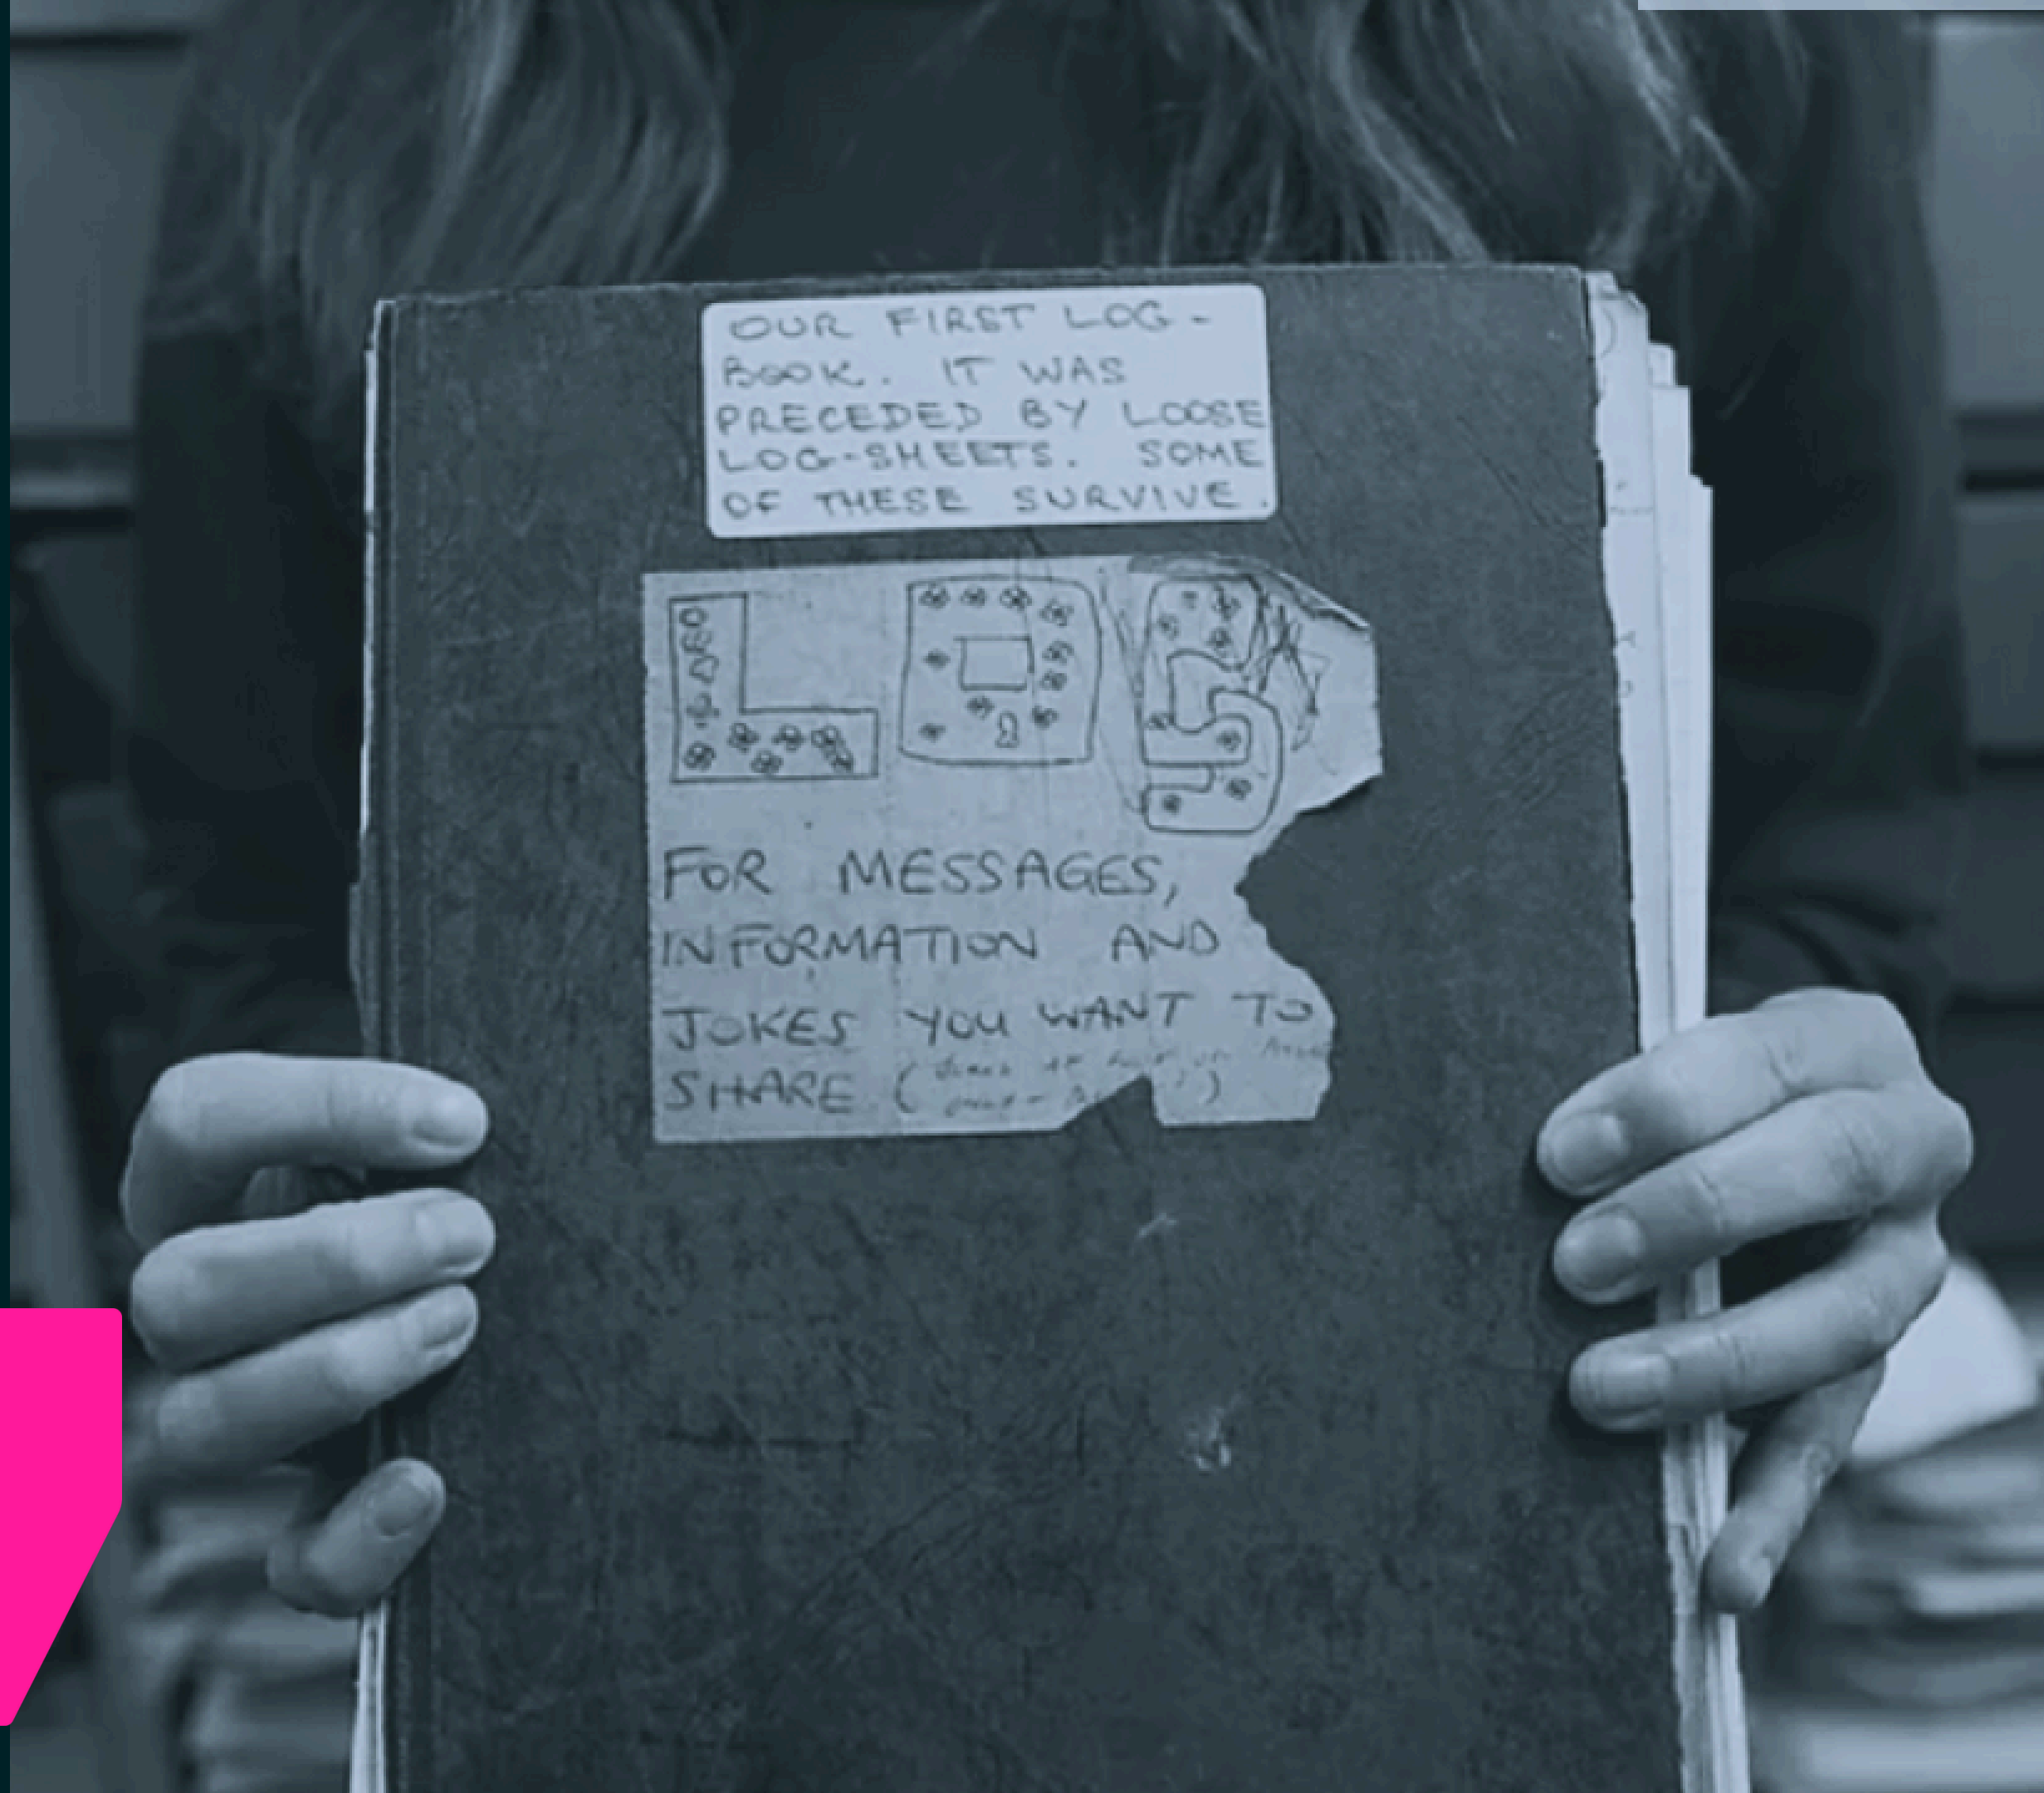 OUR FIRST LOG-
BOOK. IT WAS
PRECEDED BY LOOSE
LOG-SHEETS. SOME
OF THESE SURVIVE.
LOG
FOR MESSAGES,
INFORMATION AND
JOKES YOU WANT TO
SHARE (
)